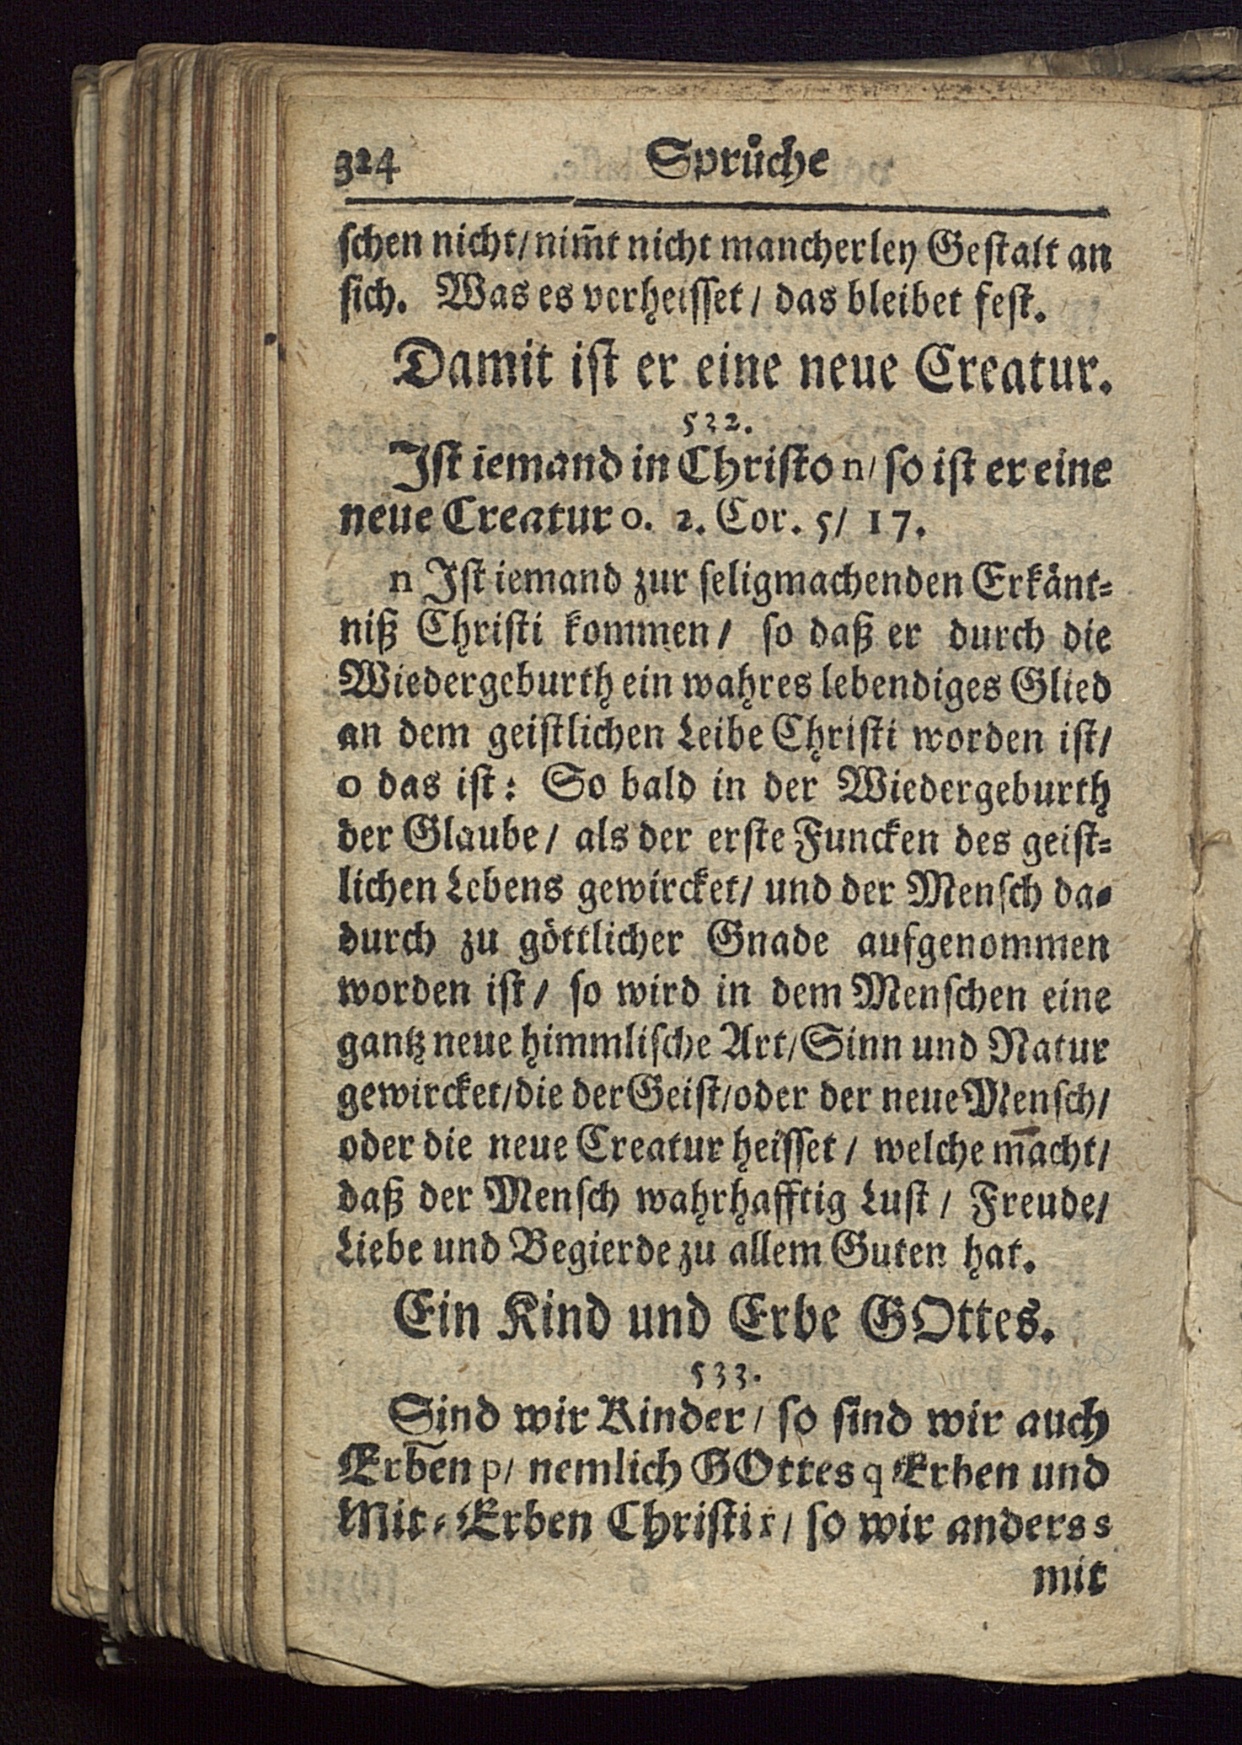 324 Sprüche
schen nicht/ nim̃t nicht mancherley Gestalt an
sich. Was es verheisset/ das bleibet fest.
Damit ist er eine neue Creatur.
532.
Ist iemand in Christo n/ so ist er eine
neue Creatur o. 2. Cor. 5/ 17.
n Ist iemand zur seligmachenden Erkänt-
niß Christi kommen/ so daß er durch die
Wiedergeburth ein wahres lebendiges Glied
an dem geistlichen Leibe Christi worden ist/
o das ist: So bald in der Wiedergeburth
der Glaube/ als der erste Funcken des geist-
lichen Lebens gewircket/ und der Mensch da-
durch zu göttlicher Gnade aufgenommen
worden ist/ so wird in dem Menschen eine
gantz neue himmlische Art/ Sinn und Natur
gewircket/ die der Geist/ oder der neue Mensch/
oder die neue Creatur heisset/ welche macht/
daß der Mensch wahrhafftig Lust/ Freude/
Liebe und Begierde zu allem Guten hat.
Ein Kind und Erbe GOttes.
533.
Sind wir Kinder/ so sind wir auch
Erben p/ nemlich GOttes q Erben und
Mit-Erben Christi r/ so wir anders s
mit